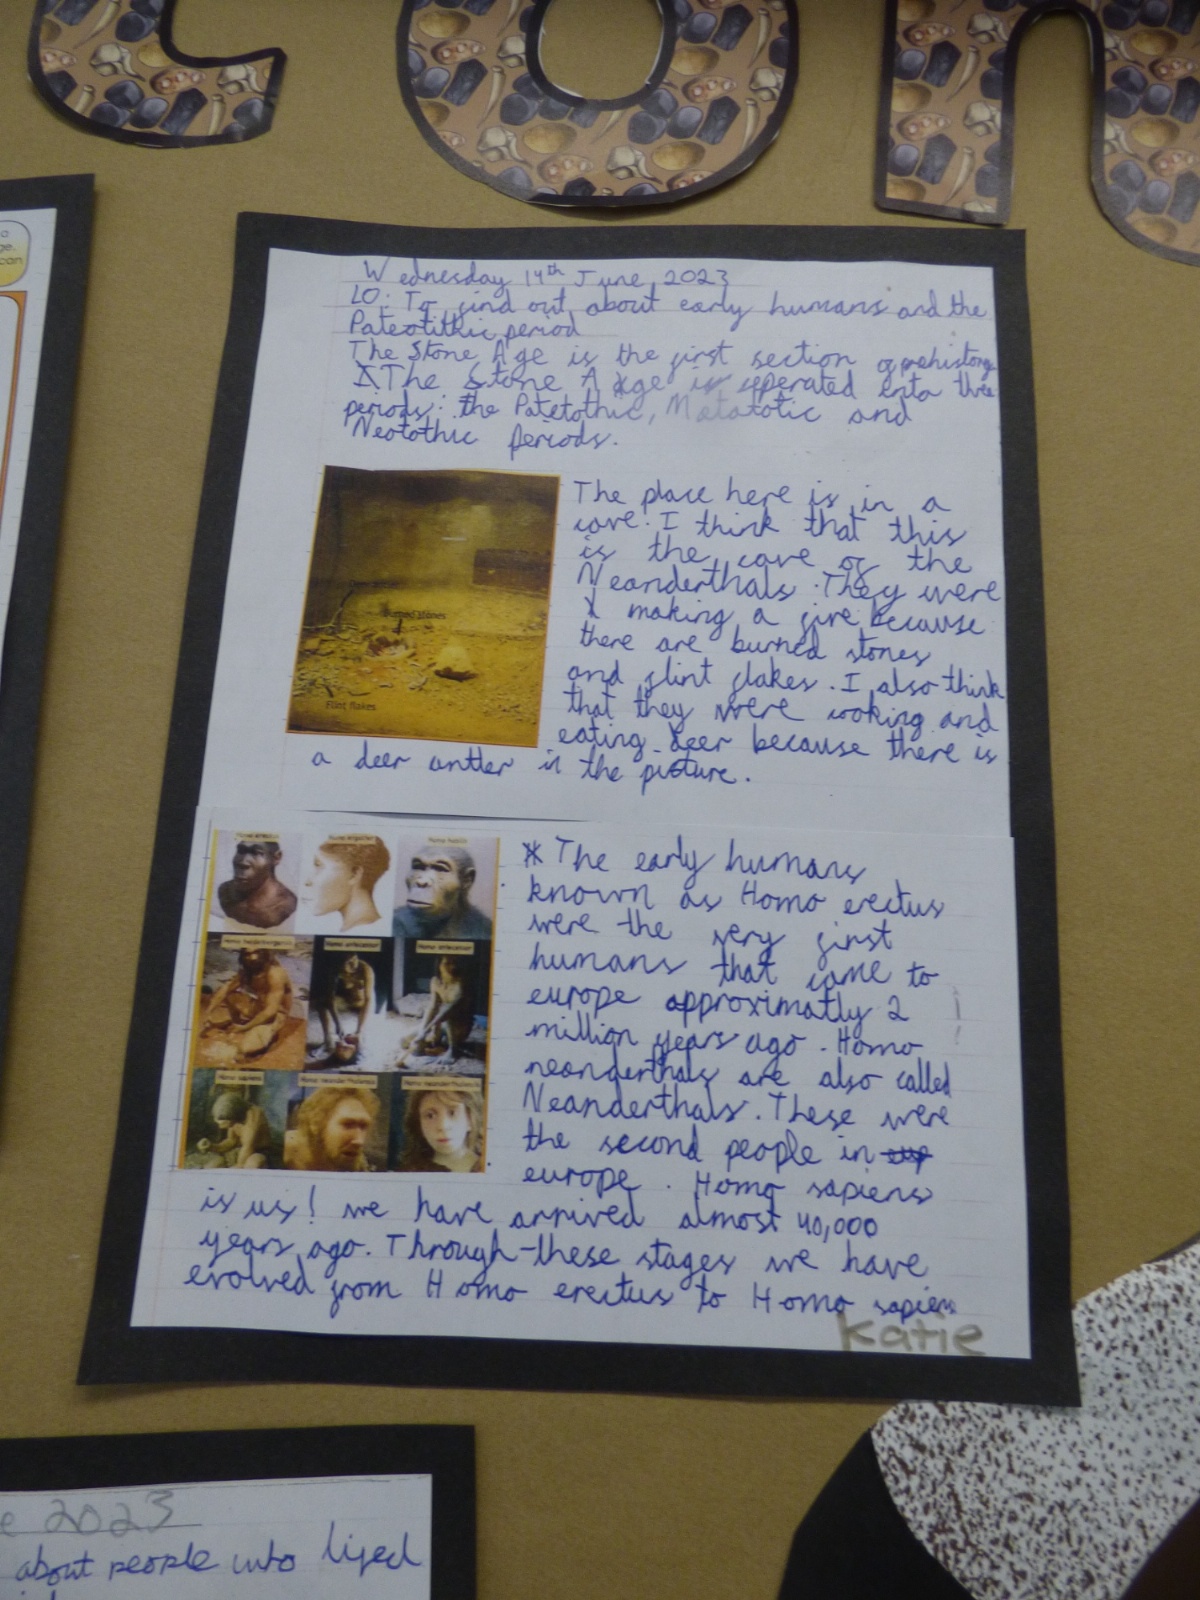 con
Wednesday 14th June 2023
LO: To find out about early humans and the
Pateotithic period
The Stone Age is the first section of prehistory
The Stone Age is seperated into three
periods: the Patetothic, Matatotic and
Neotothic periods.
The place here is in a
cave. I think that this
is the cave of the
Neanderthals. They were
making a fire because
there are burned stones
and flint flakes. I also think
that they were cooking and
eating deer because there is
a deer antler in the picture.
Burned stones
Flint flakes
Homo erectus
Homo ergaster
Homo habilis
Homo heidelbergensis
Homo antecessor
Homo antecessor
Homo sapiens
Homo neanderthalensis
Homo neanderthalensis
The early humans
known as Homo erectus
were the very first
humans that came to
europe approximatly 2
million years ago. Homo
neanderthals are also called
Neanderthals. These were
the second people in eup
europe. Homo sapiens
is us! we have arrived almost 40,000
years ago. Through these stages we have
evolved from Homo erectus to Homo sapiens
Katie
a
ge.
can
e 2023
about people into lifed